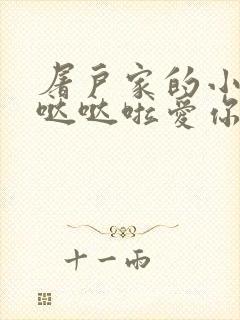 屠户家的小
哒哒啦爱你
十一雨